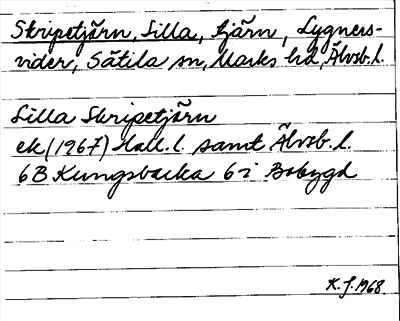 Skripetjärn, Lilla, tjärn, Lygners-
vider, Sätila sn, Marks hd, Älvsb. l.
Lilla Skripetjärn
ek (1967) Hall. l. samt Älvsb. l.
6B Kungsbacka 6 i Bobygd
K. J. 1968.